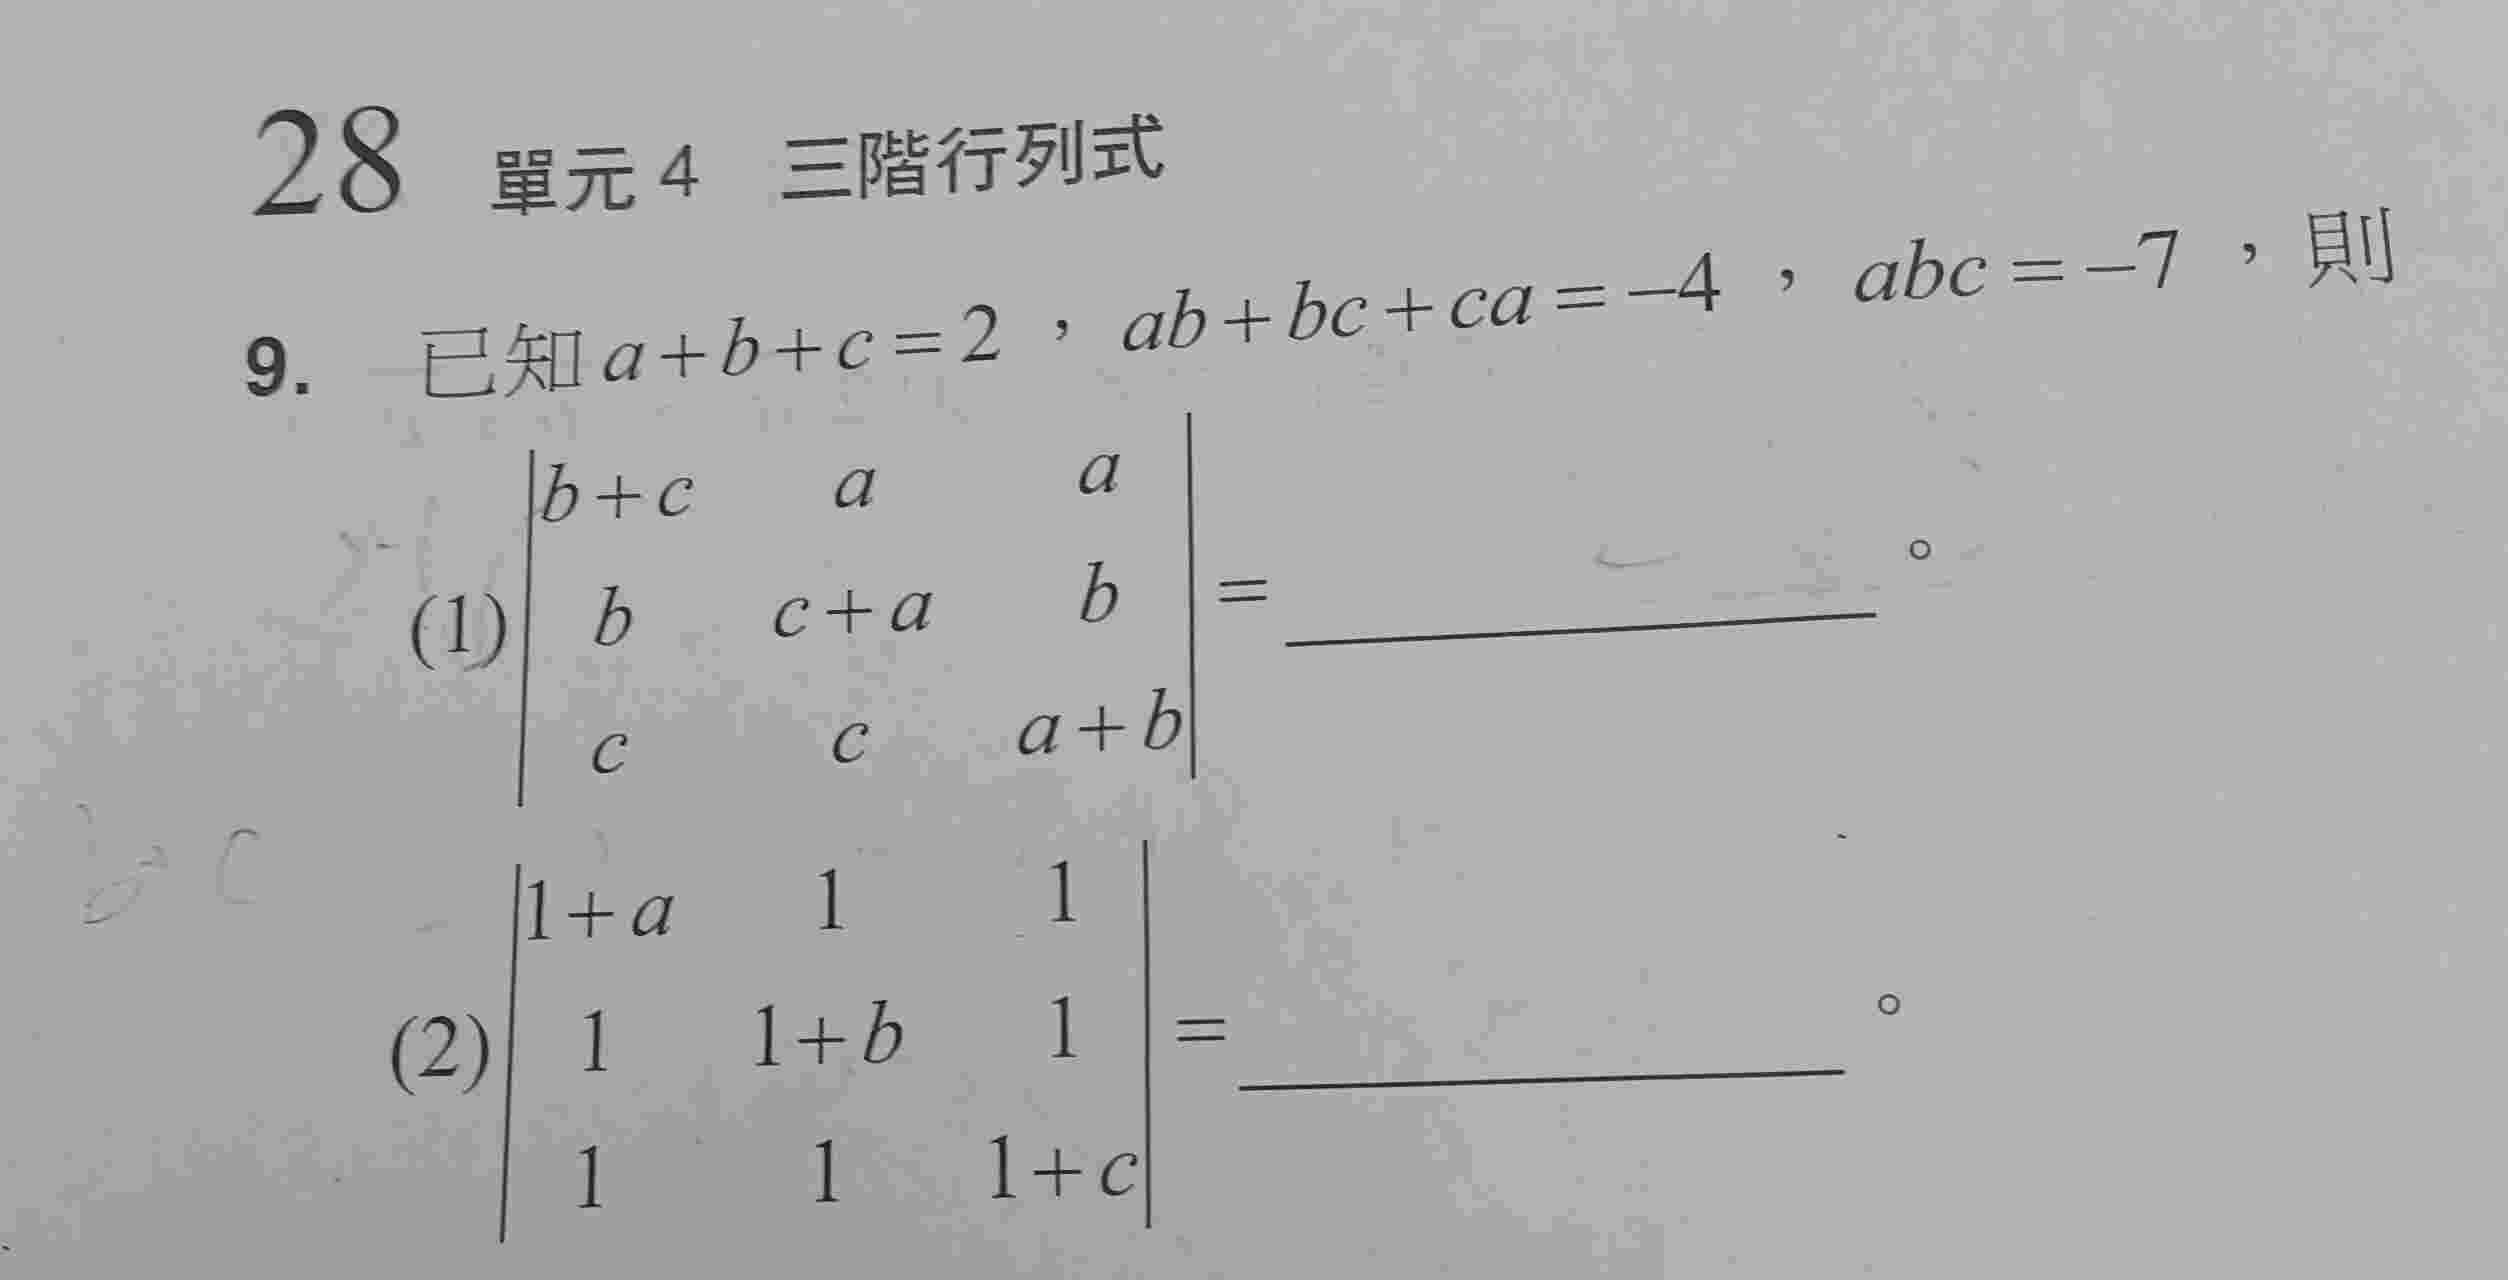 28 單元 4 三階行列式
9. 已知 a+b+c=2 , ab+bc+ca=-4 , abc=-7 , 則
(1) | b+c a a |
| b c+a b | = ________ 。
| c c a+b |
(2) | 1+a 1 1 |
| 1 1+b 1 | = ________ 。
| 1 1 1+c |